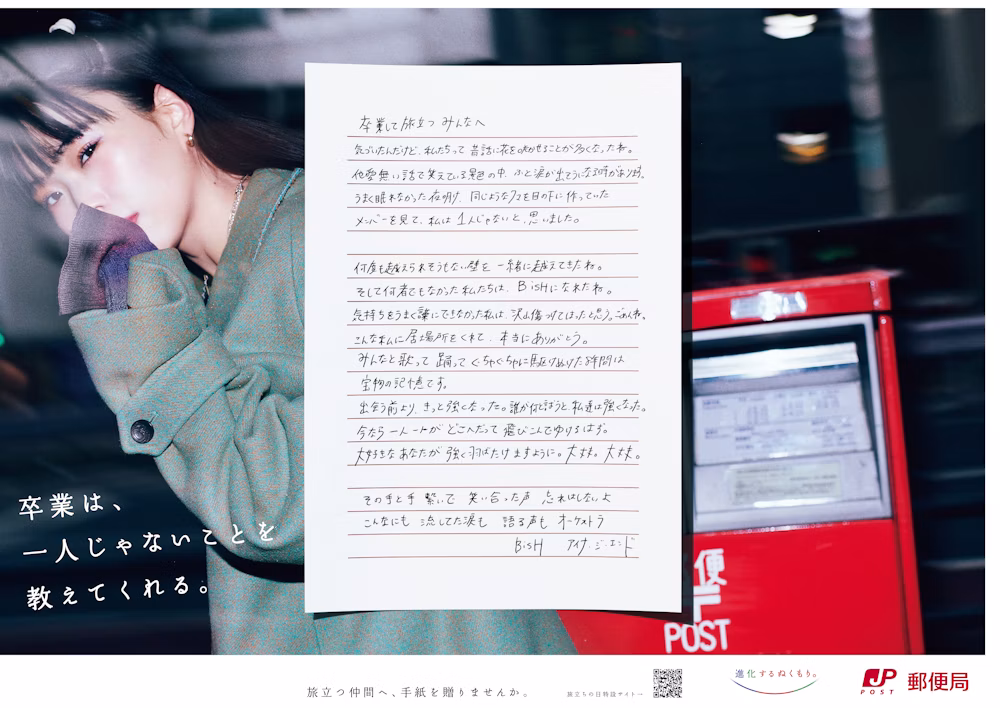 卒業して旅立つ みんなへ
気づいたんだけど、私たちって 昔話に花を咲かせることが多くなったね。
他愛無い話で笑えている景色の中、ふと涙が出てきそうになる時があります。
うまく眠れなかった夜明け、同じようなクマを目の下に作っていた
メンバーを見て、私は 1人じゃないと、思いました。
何度も越えられそうもない壁を 一緒に越えてきたね。
そして何者でもなかった私たちは、BiSHになれたね。
気持ちをうまく言葉にできなかった私は、沢山傷つけてしまったと思う。ごめんね、
こんな私に居場所をくれて、本当にありがとう。
みんなと歌って 踊って ぐちゃぐちゃに駆けぬけた 8年間は
宝物の記憶です。
出会う前より、きっと強くなった。誰が何と言おうと、私達は強くなった。
今なら一人一人が どこへだって 飛びこんでゆけるはず。
大好きなあなたが 強く羽ばたけますように。大丈夫。大丈夫。
その手と手 繋いで 笑い合った声 忘れはしないよ
こんなにも 流してた涙も 語る声も オーケストラ
BiSH アイナ・ジ・エンド
卒業は、
一人じゃないことを
教えてくれる。
便
POST
旅立つ仲間へ、手紙を贈りませんか。
旅立ちの日特設サイト→
進化するぬくもり。
JP
POST
郵便局